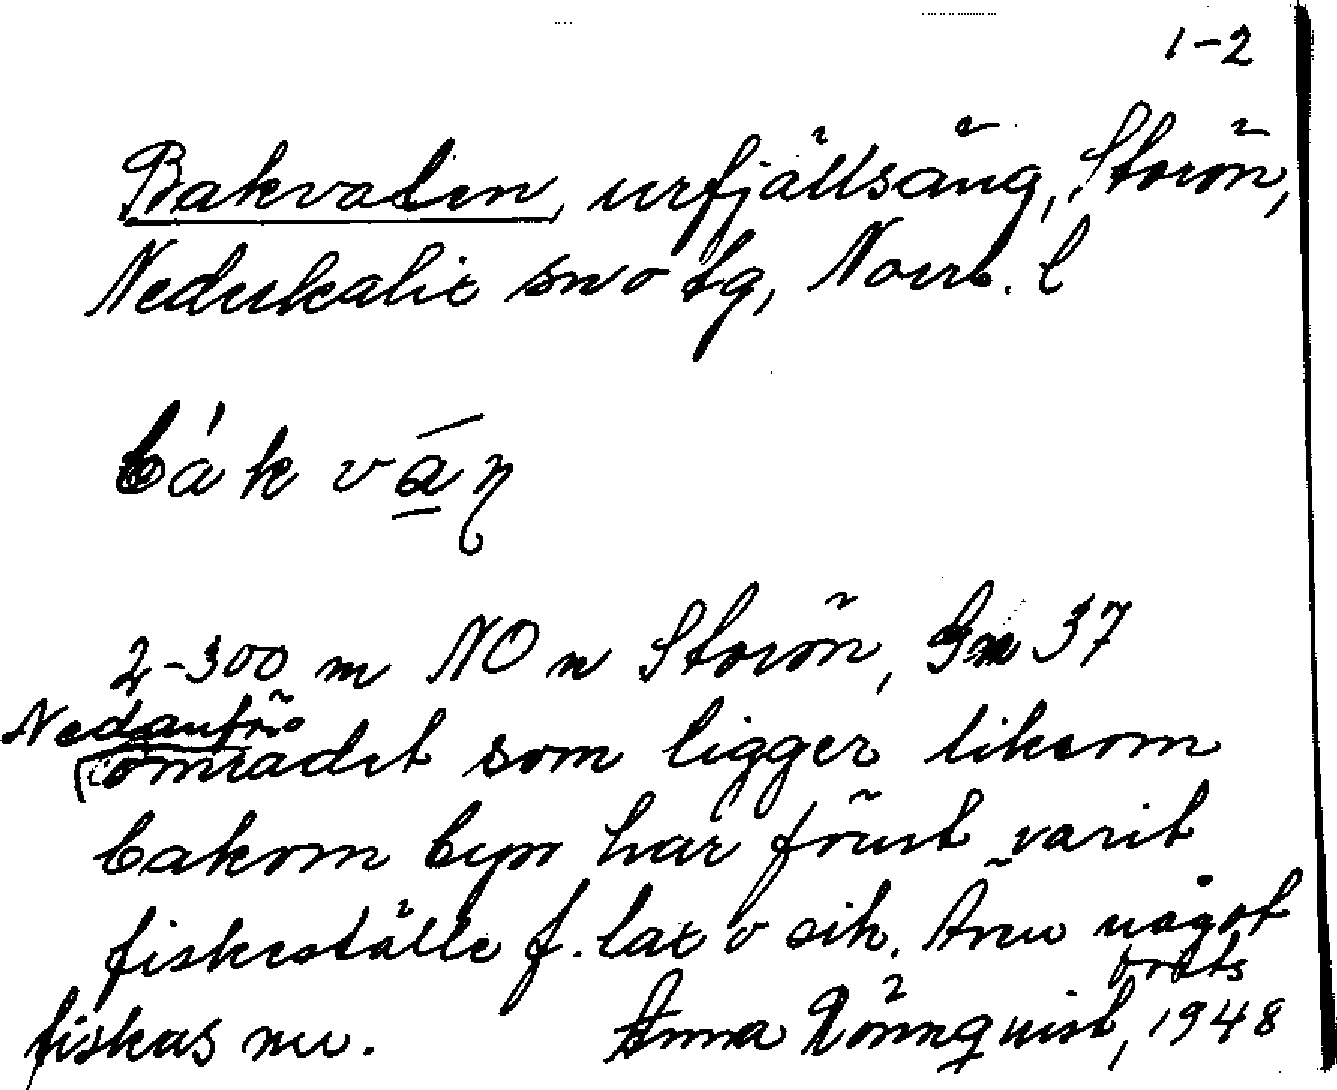 1-2
Bakvaden, urfjällsäng, Storön,
Nederkalix sn o tg, Norrb. l
bákvāṇ
2-300 m NO n Storön, Gm 37
Nedanför
området som ligger liksom
bakom byn har förut varit
fiskeställe f. lax o sik. Ännu något
orats
fiskas nu. Anna Rönnquist, 1948